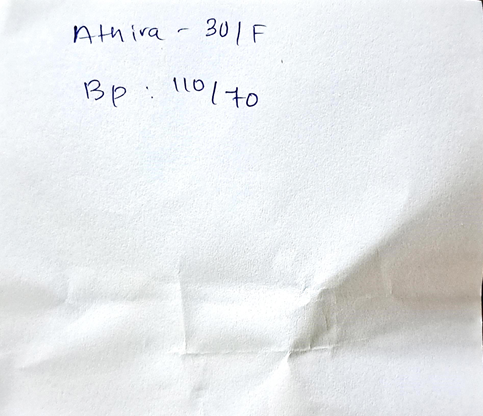 Athira - 30/F
Bp : 110/70